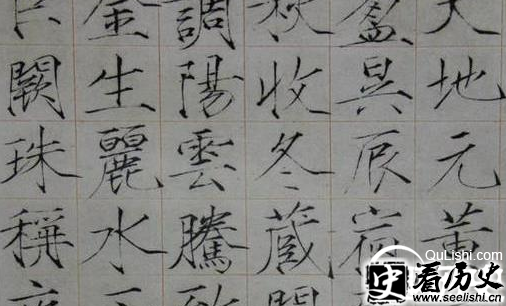 天地元黄
盈昃辰宿
秋收冬藏閏
調陽雲騰致
金生麗水玉
巨闕珠稱夜
QuLishi.com
看历史
www.seelishi.cn